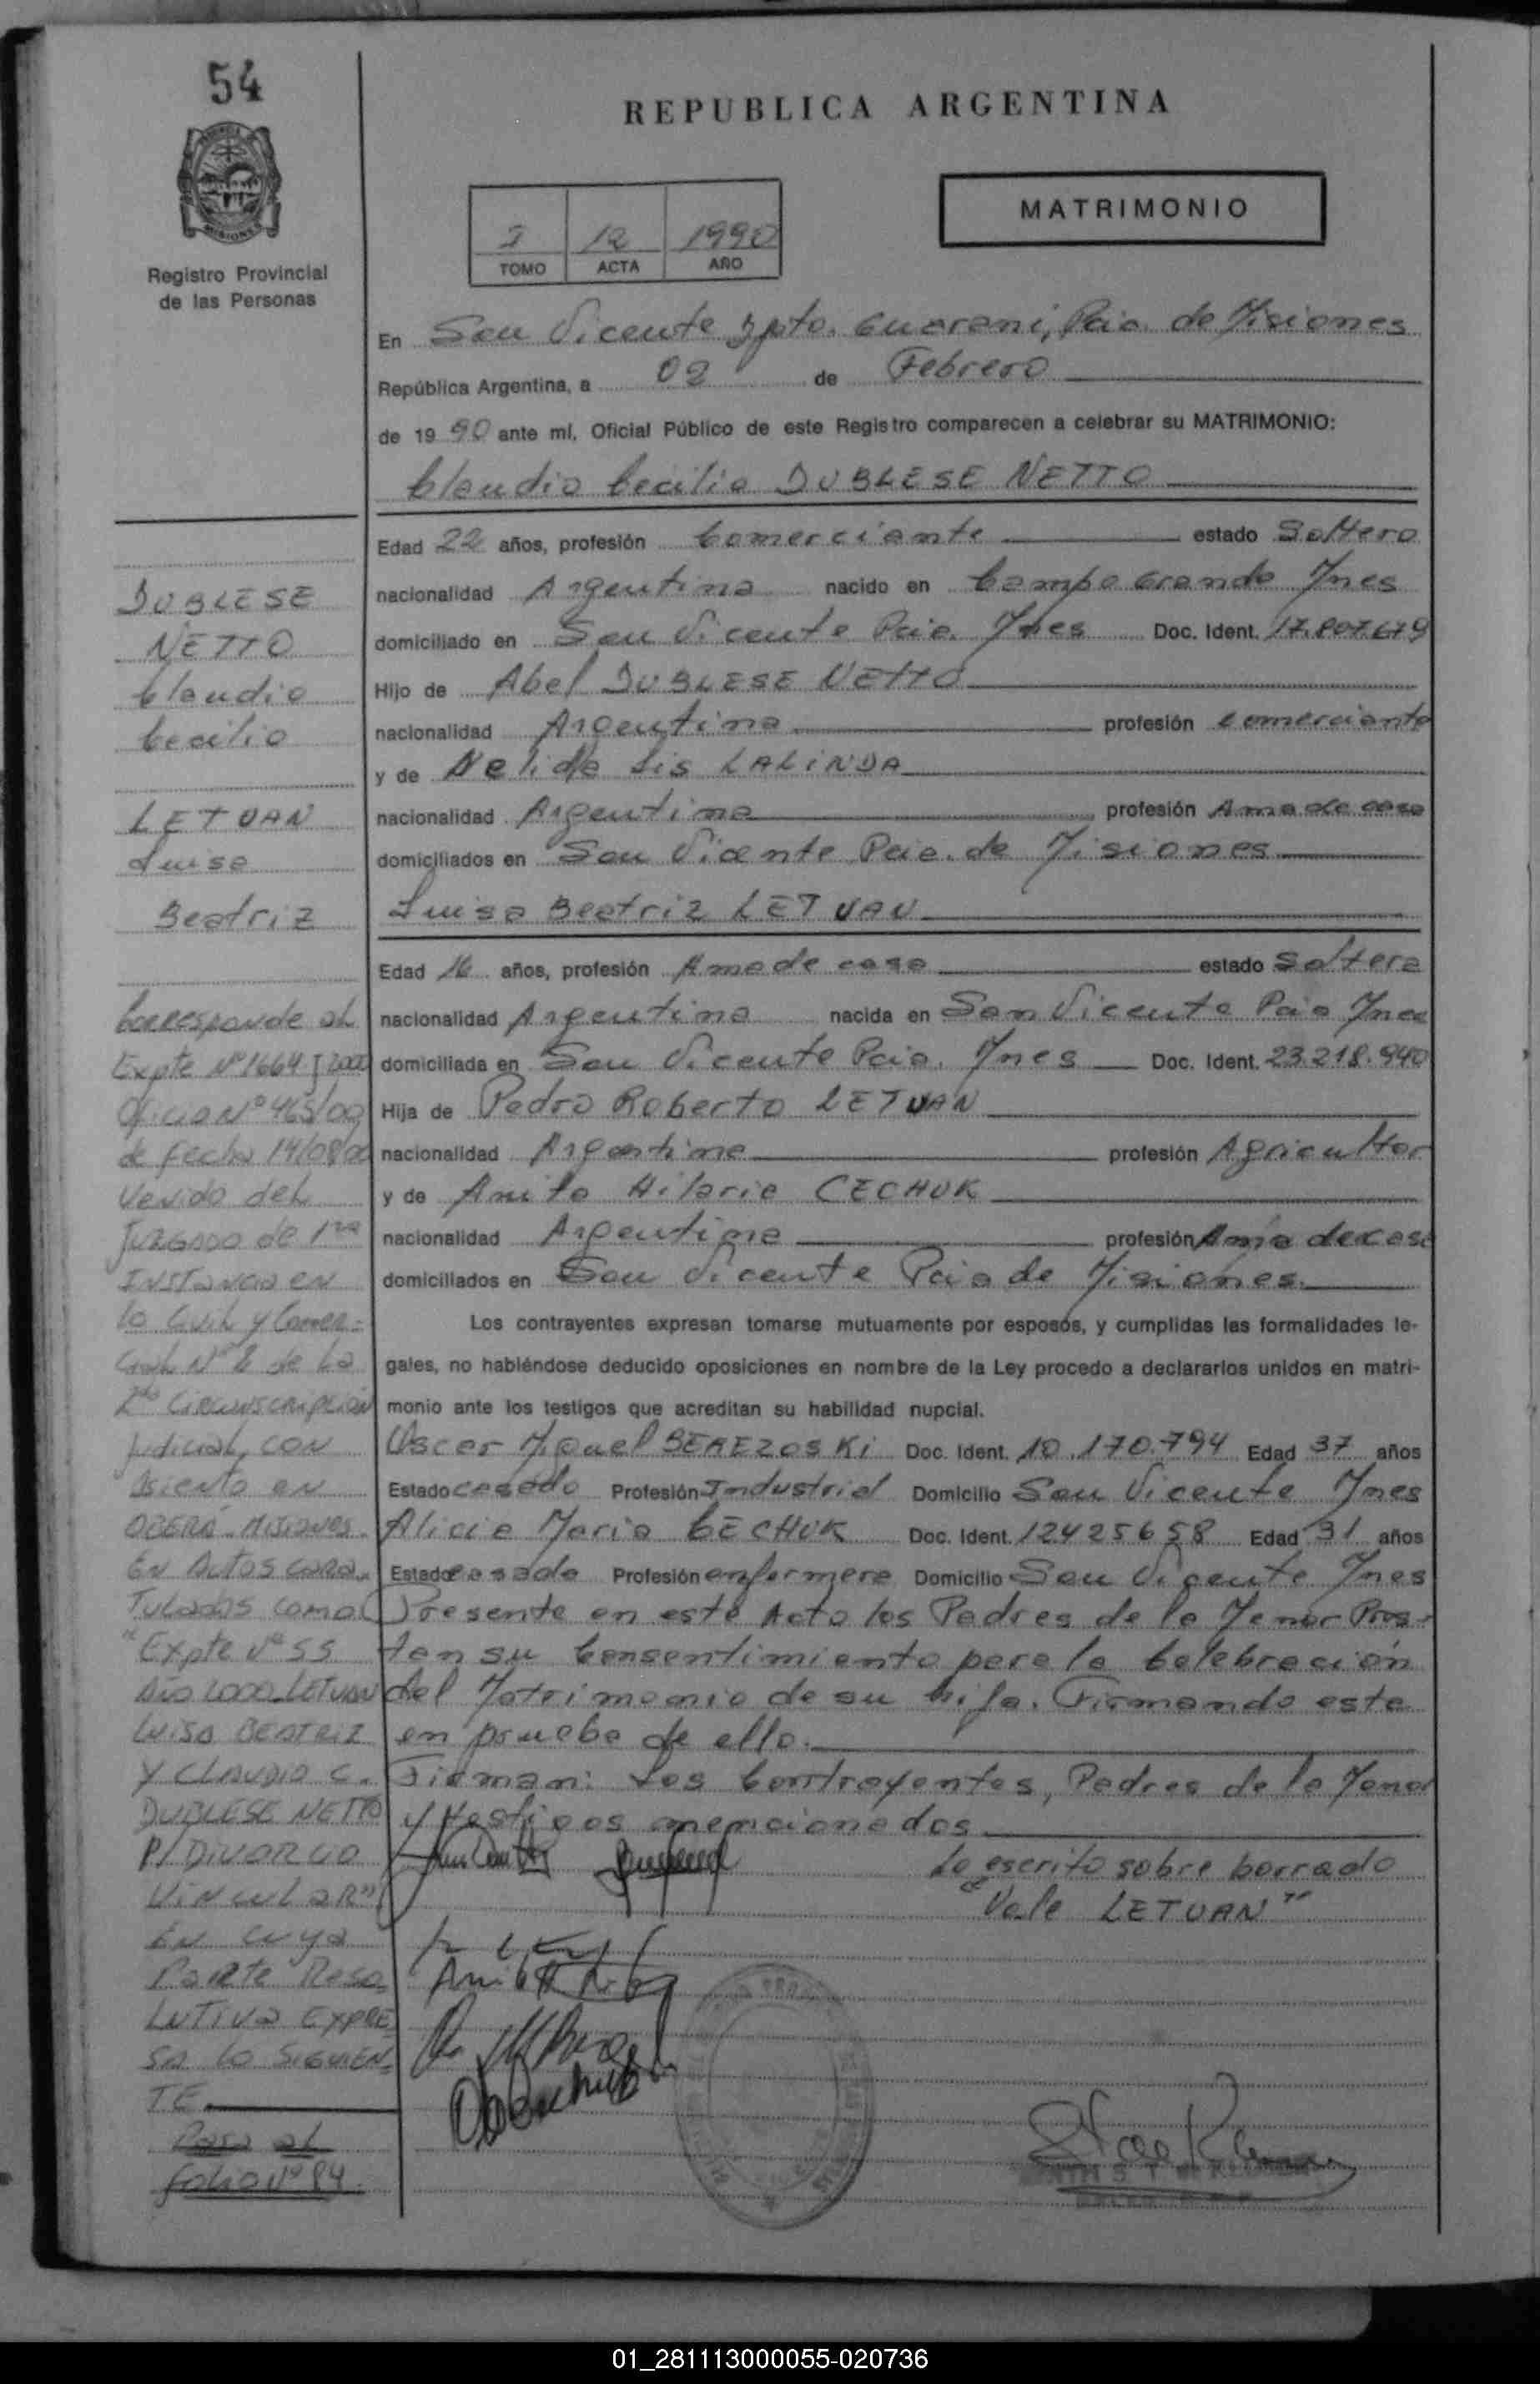 54
REPUBLICA ARGENTINA
MATRIMONIO
I 12 1990
TOMO ACTA AÑO
Registro Provincial
de las Personas
En San Vicente Dpto. Guarani, Pcia. de Misiones
República Argentina, a 02 de Febrero
de 1990 ante mí, Oficial Público de este Registro comparecen a celebrar su MATRIMONIO:
Claudio Cecilio DUBLESE NETTO
Edad 22 años, profesión Comerciante estado Soltero
nacionalidad Argentina nacido en Campo Grande Mnes
domiciliado en San Vicente Pcia. Mnes Doc. Ident. 17.807.679
Hijo de Abel DUBLESE NETTO
nacionalidad Argentina profesión comerciante
y de Nelida Lis LALINDA
nacionalidad Argentina profesión Ama de casa
domiciliados en San Vicente Pcia. de Misiones
Luisa Beatriz LETVAN
Edad 16 años, profesión Ama de casa estado Soltera
nacionalidad Argentina nacida en San Vicente Pcia Mnes
domiciliada en San Vicente Pcia. Mnes Doc. Ident. 23.218.940
Hija de Pedro Roberto LETVAN
nacionalidad Argentina profesión Agricultor
y de Anita Hilaria CECHUK
nacionalidad Argentina profesión Ama de casa
domiciliados en San Vicente Pcia de Misiones
Los contrayentes expresan tomarse mutuamente por esposos, y cumplidas las formalidades le-
gales, no habiéndose deducido oposiciones en nombre de la Ley procedo a declararlos unidos en matri-
monio ante los testigos que acreditan su habilidad nupcial.
Oscar Miguel BEREZOSKI Doc. Ident. 10.170.794 Edad 37 años
Estado casado Profesión Industrial Domicilio San Vicente Mnes
Alicia Maria CECHUK Doc. Ident. 12425658 Edad 31 años
Estado casada Profesión enfermera Domicilio San Vicente Mnes
Presente en este Acto los Padres de la Menor Pres-
tan su Consentimiento para la Celebración
del Matrimonio de su hija. Firmando este
en prueba de ello.
Firman: Los Contrayentes, Padres de la Menor
y testigos mencionados
Lo escrito sobre borrado
"Vale LETVAN"
DUBLESE
NETTO
Claudio
Cecilio
LETVAN
Luisa
Beatriz
Corresponde al
Expte Nº 1664 J 2000
Oficio Nº 465/00
de fecha 14/08/00
venido del
Juzgado de 1ra
Instancia en
lo Civil y Comer-
cial Nº 2 de la
2da Circunscripcion
judicial, con
asiento en
OBERÁ - Misiones.
En Autos cara-
tulados como
"Expte Nº 55
Año 2000 LETVAN
LUISA BEATRIZ
Y CLAUDIO C.
DUBLESE NETTO
P/ DIVORCIO
VINCULAR"
En cuya
Parte Reso-
lutiva EXPRE-
SA lo SIGUIEN-
TE
Pasa al
folio Nº 84.
01_281113000055-020736